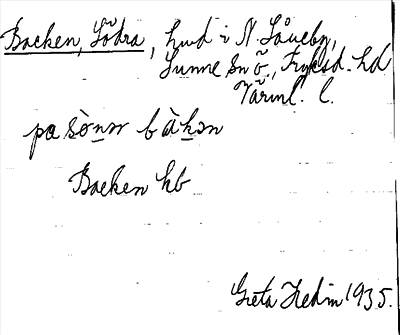 Backen, Södra, hmd i N. Låneby,
Sunne sn ö., Fryksd. hd
Värml. l.
pa sònɳ bàkən
Backen hb
Greta Hedin 1935.